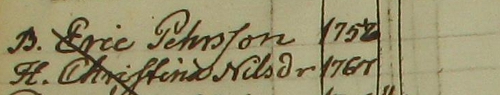 B. Eric Pehrsson 1758
H. Christina Nilsdr 1767